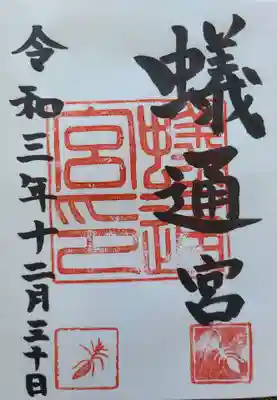 蟻通宮
蟻通
宮印
令和三年十二月三十日